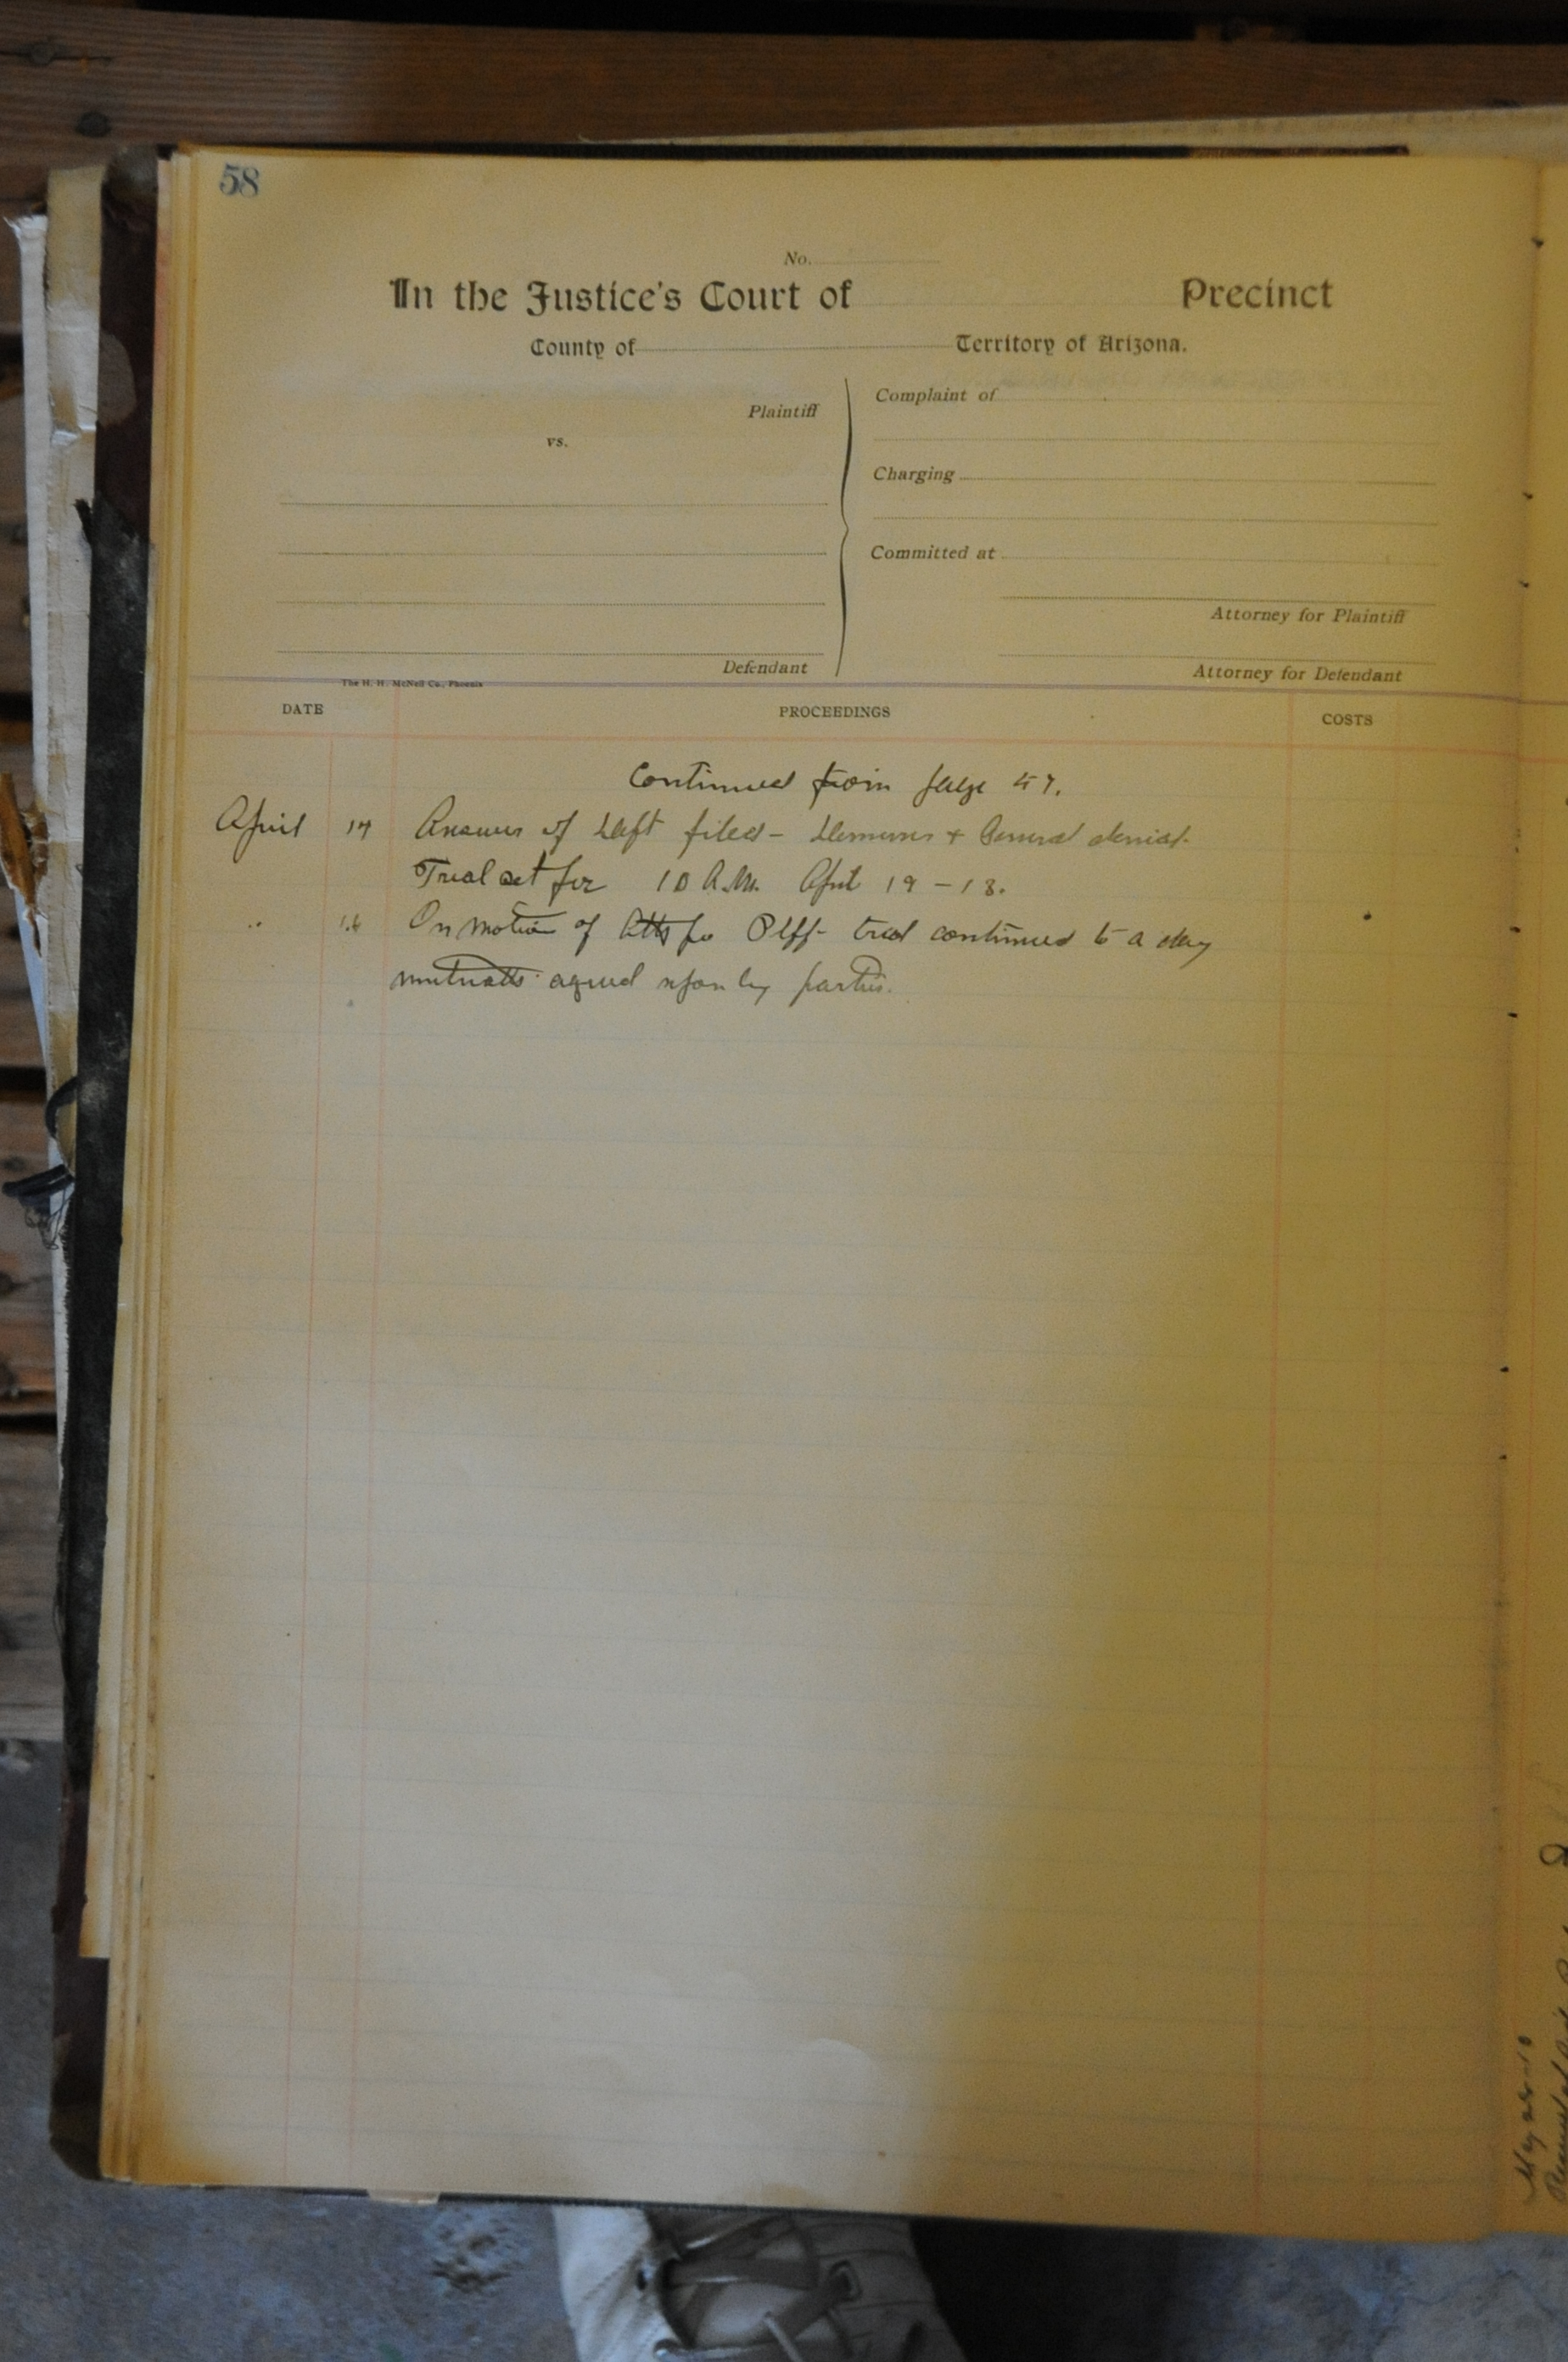 58
No.
In the Justice's Court of Precinct
County of Territory of Arizona.
Plaintiff
vs.
Defendant
Complaint of
Charging
Committed at
Attorney for Plaintiff
Attorney for Defendant
The H. H. McNeil Co., Phoenix
DATE PROCEEDINGS COSTS
Continued from page 57.
April 14 Answer of Deft filed - Demurrer + General denial.
Trial set for 10 A.M. April 19 - 13.
" On motion of Atty for Plff - trial continued to a day
mutually agreed upon by parties.
May 28-10